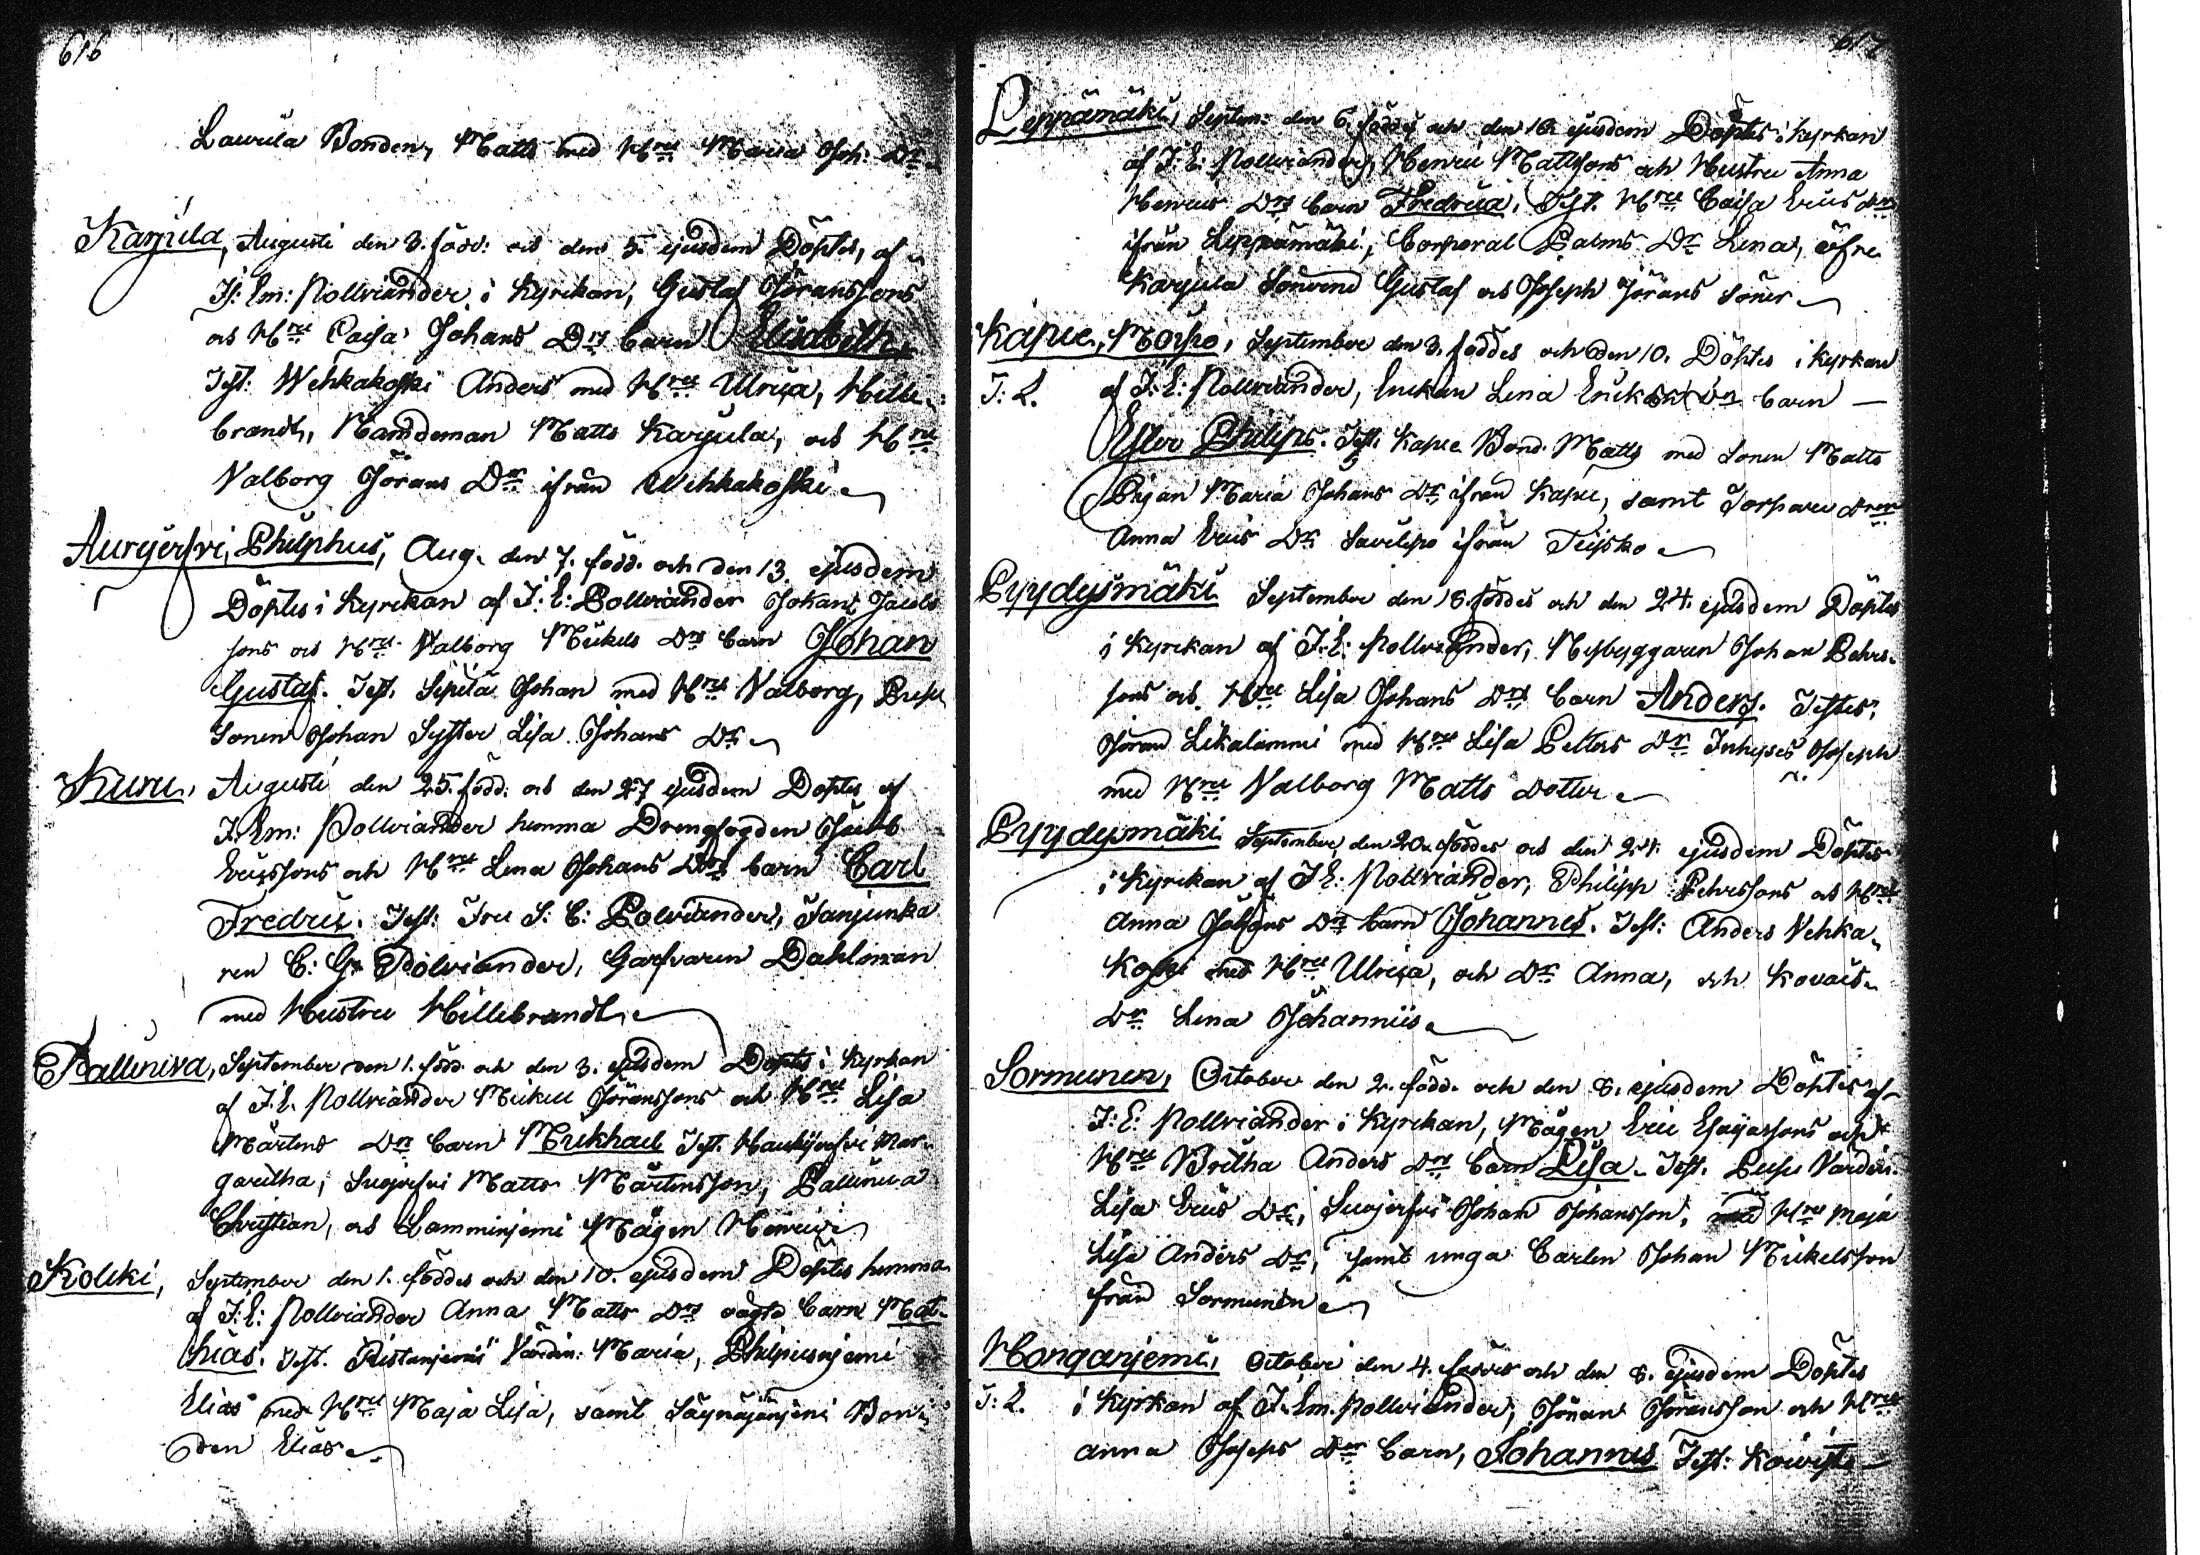 616
Laurila Bonden, Matts med H:ru Maria Joh: D:r
Karjula, Augusti den 3. född: och den 5. ejusdem Döptes, af
J: Em: Pollviander i Kyrckan, Gustaf Jöranssons
och H:ru Caisa Johans D:rs barn Elisabeth
Test: Wehkakoski Anders med H:ru Ulrica, Hille-
brandt, Nämdeman Matts Karjula, och H:ru
Valborg Jörans D:r ifrån Wehkakoski
Aurejerfvi, Philphus, Aug. den 7. född. och den 13. ejusdem
Döptes i Kyrckan af J: E: Pollviander Johans Jacobs
sons och H:ru Valborg Mickels D:rs barn Johan
Gustaf. Test. Seppälä Johan med H:ru Valborg,
Sonen Johan Syster Lisa Johans D:r
Kuru, Augusti den 25. född. och den 27 ejusdem Döptes af
J. Em: Pollviander hemma Drengfogden Jacob
Ericssons och H:ru Lena Johans D:rs barn Carl
Fredric. Test: Fru S: C: Polviander, Fanjunka
ren C: G: Polviander, Garfvaren Dahlman
med Hustru Hillebrandt
Palluniva, September den 1. född. och den 3. ejusdem Döptes i Kyrkan
af J. E. Pollviander Mickell Jöranssons och H:ru Lisa
Mårtens D:rs barn Mickhael Test. Haukijerfvi Mar-
garetha, Suojerfvi Matts Mårtensson, Palluniva
Christian, och Lamminjemi Mågen Henric
Kolkki, September den 1. föddes och den 10. ejusdem Döptes hemma
af J: E: Pollviander Anna Matts D:rs oägta barn Mat-
hias. Test. Ristanjemi Värdin: Maria, Philpusnjemi
Elias med H:ru Maja Lisa, samt Säynäjänjemi Bon-
den Elias
617
Leppämäki, Septem: den 6. föddes och den 10. ejusdem Döptes i Kyrkan
af J: E: Pollviander, Henric Mattssons och Hustru Anna
Henrics D:rs barn Fredrica, Test. H:ru Caisa Erics D:r
ifrån Leppämäki, Corporal Palms D:r Lena, öfre
Karjula Sonen Gustaf och Joseph Jörans söner
Kapee, Morpo, September den 3. föddes och den 10. Döptes i Kyrkan
T: L. af J: E: Pollviander, Enckan Lena Ericks D:rs barn
Ester Philips. Test: Kapee Bond. Matts med Sonen Matts
Pigan Maria Johans D:r ifrån Kapee, samt Torpare D:ren
Anna Erics D:r Savilepo ifrån Teisko
Pyydysmäki September den 18. föddes och den 24. ejusdem Döptes
i Kyrckan af J: E: Pollviander, Nybyggaren Johan Pehrs-
sons och H:ru Lisa Johans D:rs barn Anders. Testes,
Jöran Likalammi med H:ru Lisa Petters D:r Inhyses Joseph
med H:ru Valborg Matts dotter
Pyydysmäki September den 20. föddes och den 24. ejusdem Döptes
i Kyrckan af J E: Pollviander, Philipp Pehrssons och H:ru
Anna Johans D:rs barn Johannes. Test: Anders Vehka-
koski med H:ru Ulrica, och D:r Anna, och
D:r Lena Johannis
Sormunen, October den 2. född. och den 8. ejusdem Döptes af
J: E: Pollviander i Kyrckan, Mågen Eric Esaiassons och
H:ru Britha Anders D:rs barn Lisa. Test. Värdin:
Lisa Erics D:r, Suojerfvi Johan Johansson, med H:ru Maja
Lisa Anders D:r, samt unga Carlen Johan Mickelsson
från Sormunen
Honganjemi, October den 4. föddes och den 8. ejusdem Döptes
T: L. i Kyrkan af J. Em. Pollviander, Jöran Jöransson och H:ru
Anna Josephs D:rs barn, Johannes Test: Koivisto